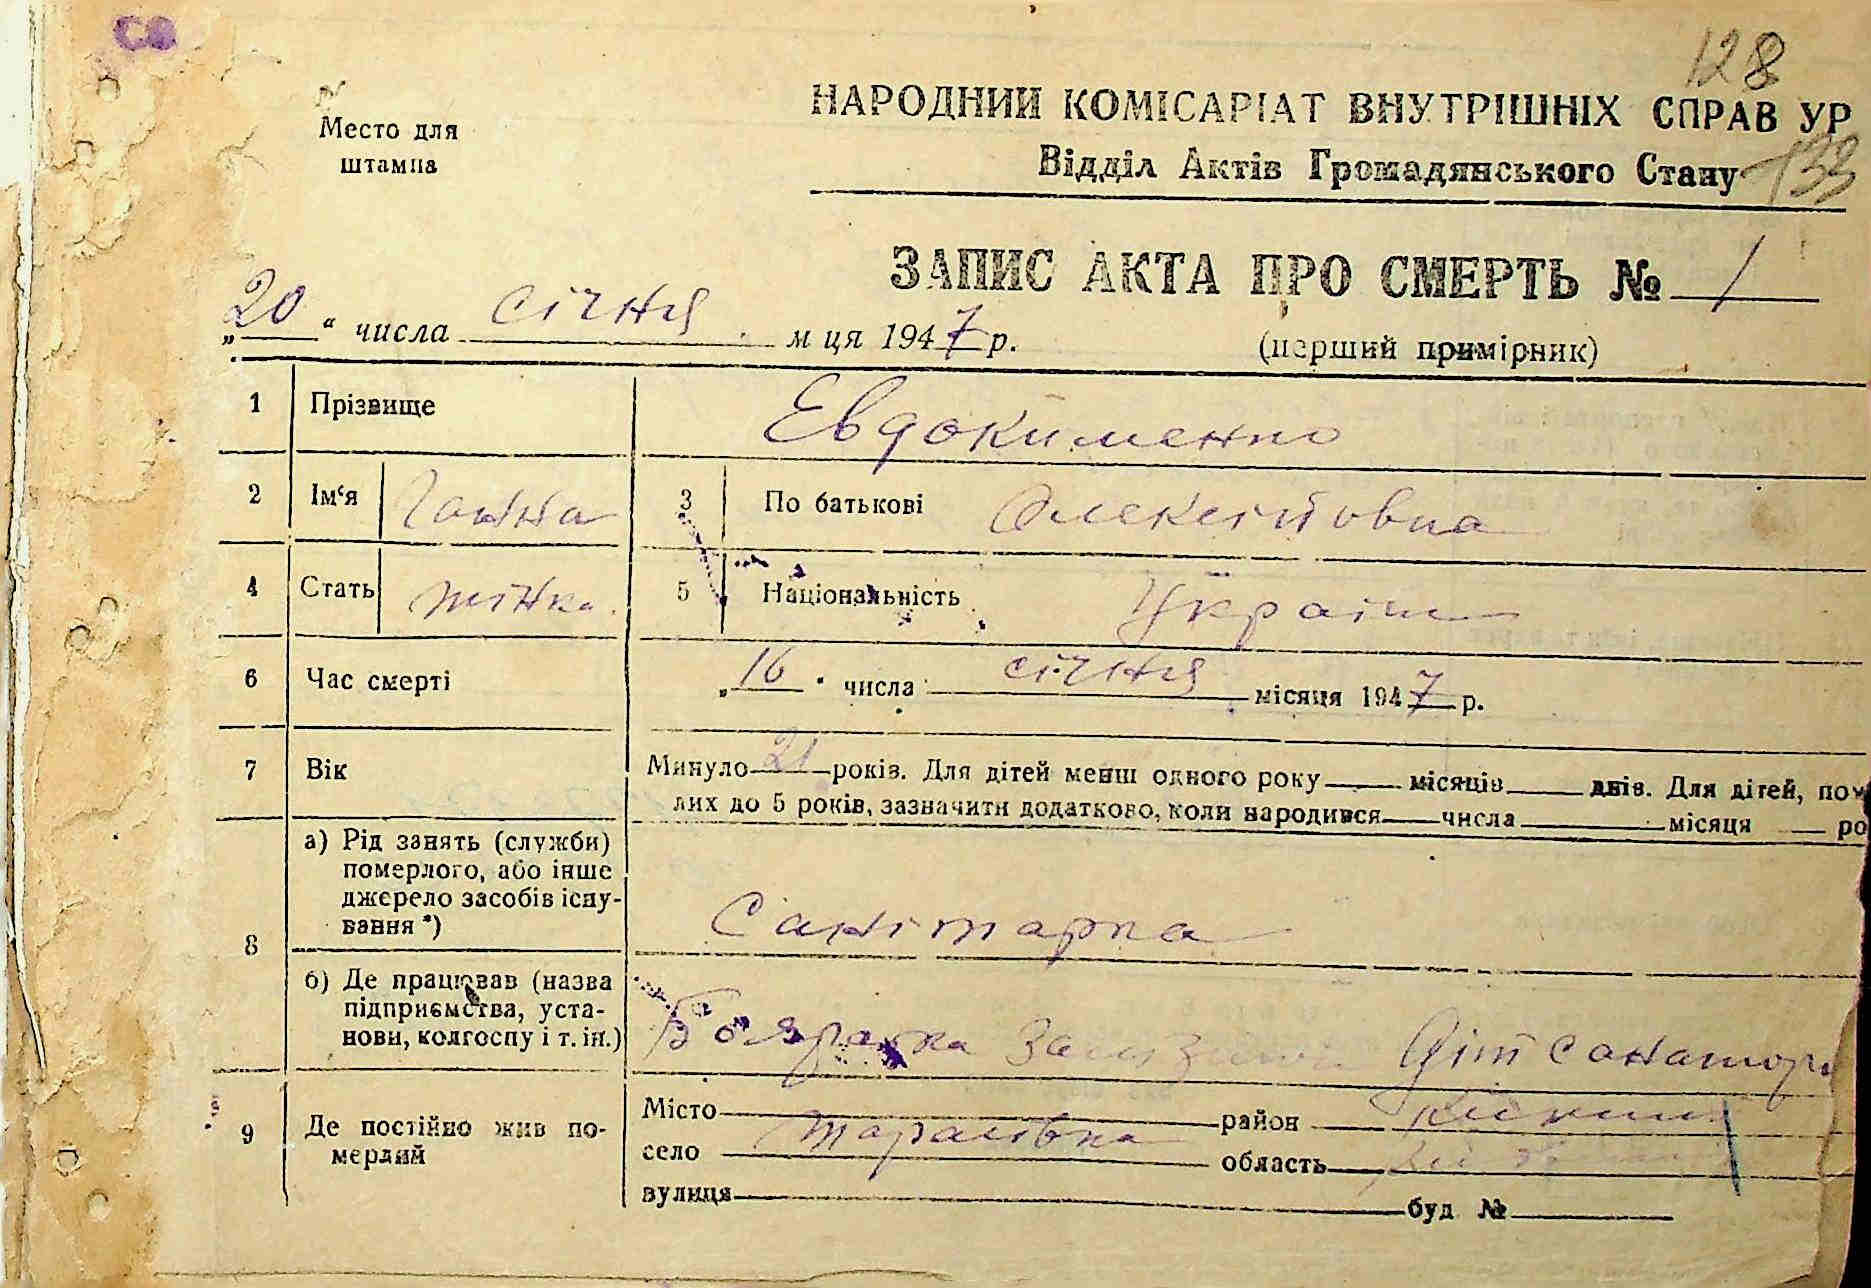 св
128
Место для
штампа
НАРОДНИЙ КОМІСАРІАТ ВНУТРІШНІХ СПРАВ УР
Відділ Актів Громадянського Стану
133
ЗАПИС АКТА ПРО СМЕРТЬ № 1
„20“ числа січня м ця 1947 р.
(перший примірник)
1 Прізвище Евдокименко
2 Ім‘я Ганна 3 По батькові Олексіївна
4 Стать жінка. 5 Національність Україн
6 Час смерті „16“ числа січня місяця 1947 р.
7 Вік Минуло 21 років. Для дітей менш одного року місяців днів. Для дітей, пом
лих до 5 років, зазначити додатково, коли народився числа місяця ро
8 а) Рід занять (служби)
померлого, або інше
джерело засобів існу-
вання *)
Санітарка
б) Де працював (назва
підприємства, уста-
нови, колгоспу і т. ін.)
Боярська Діт санатор
9 Де постійно жив по-
мерлий
Місто район
село Тарасівка область
вулиця буд №